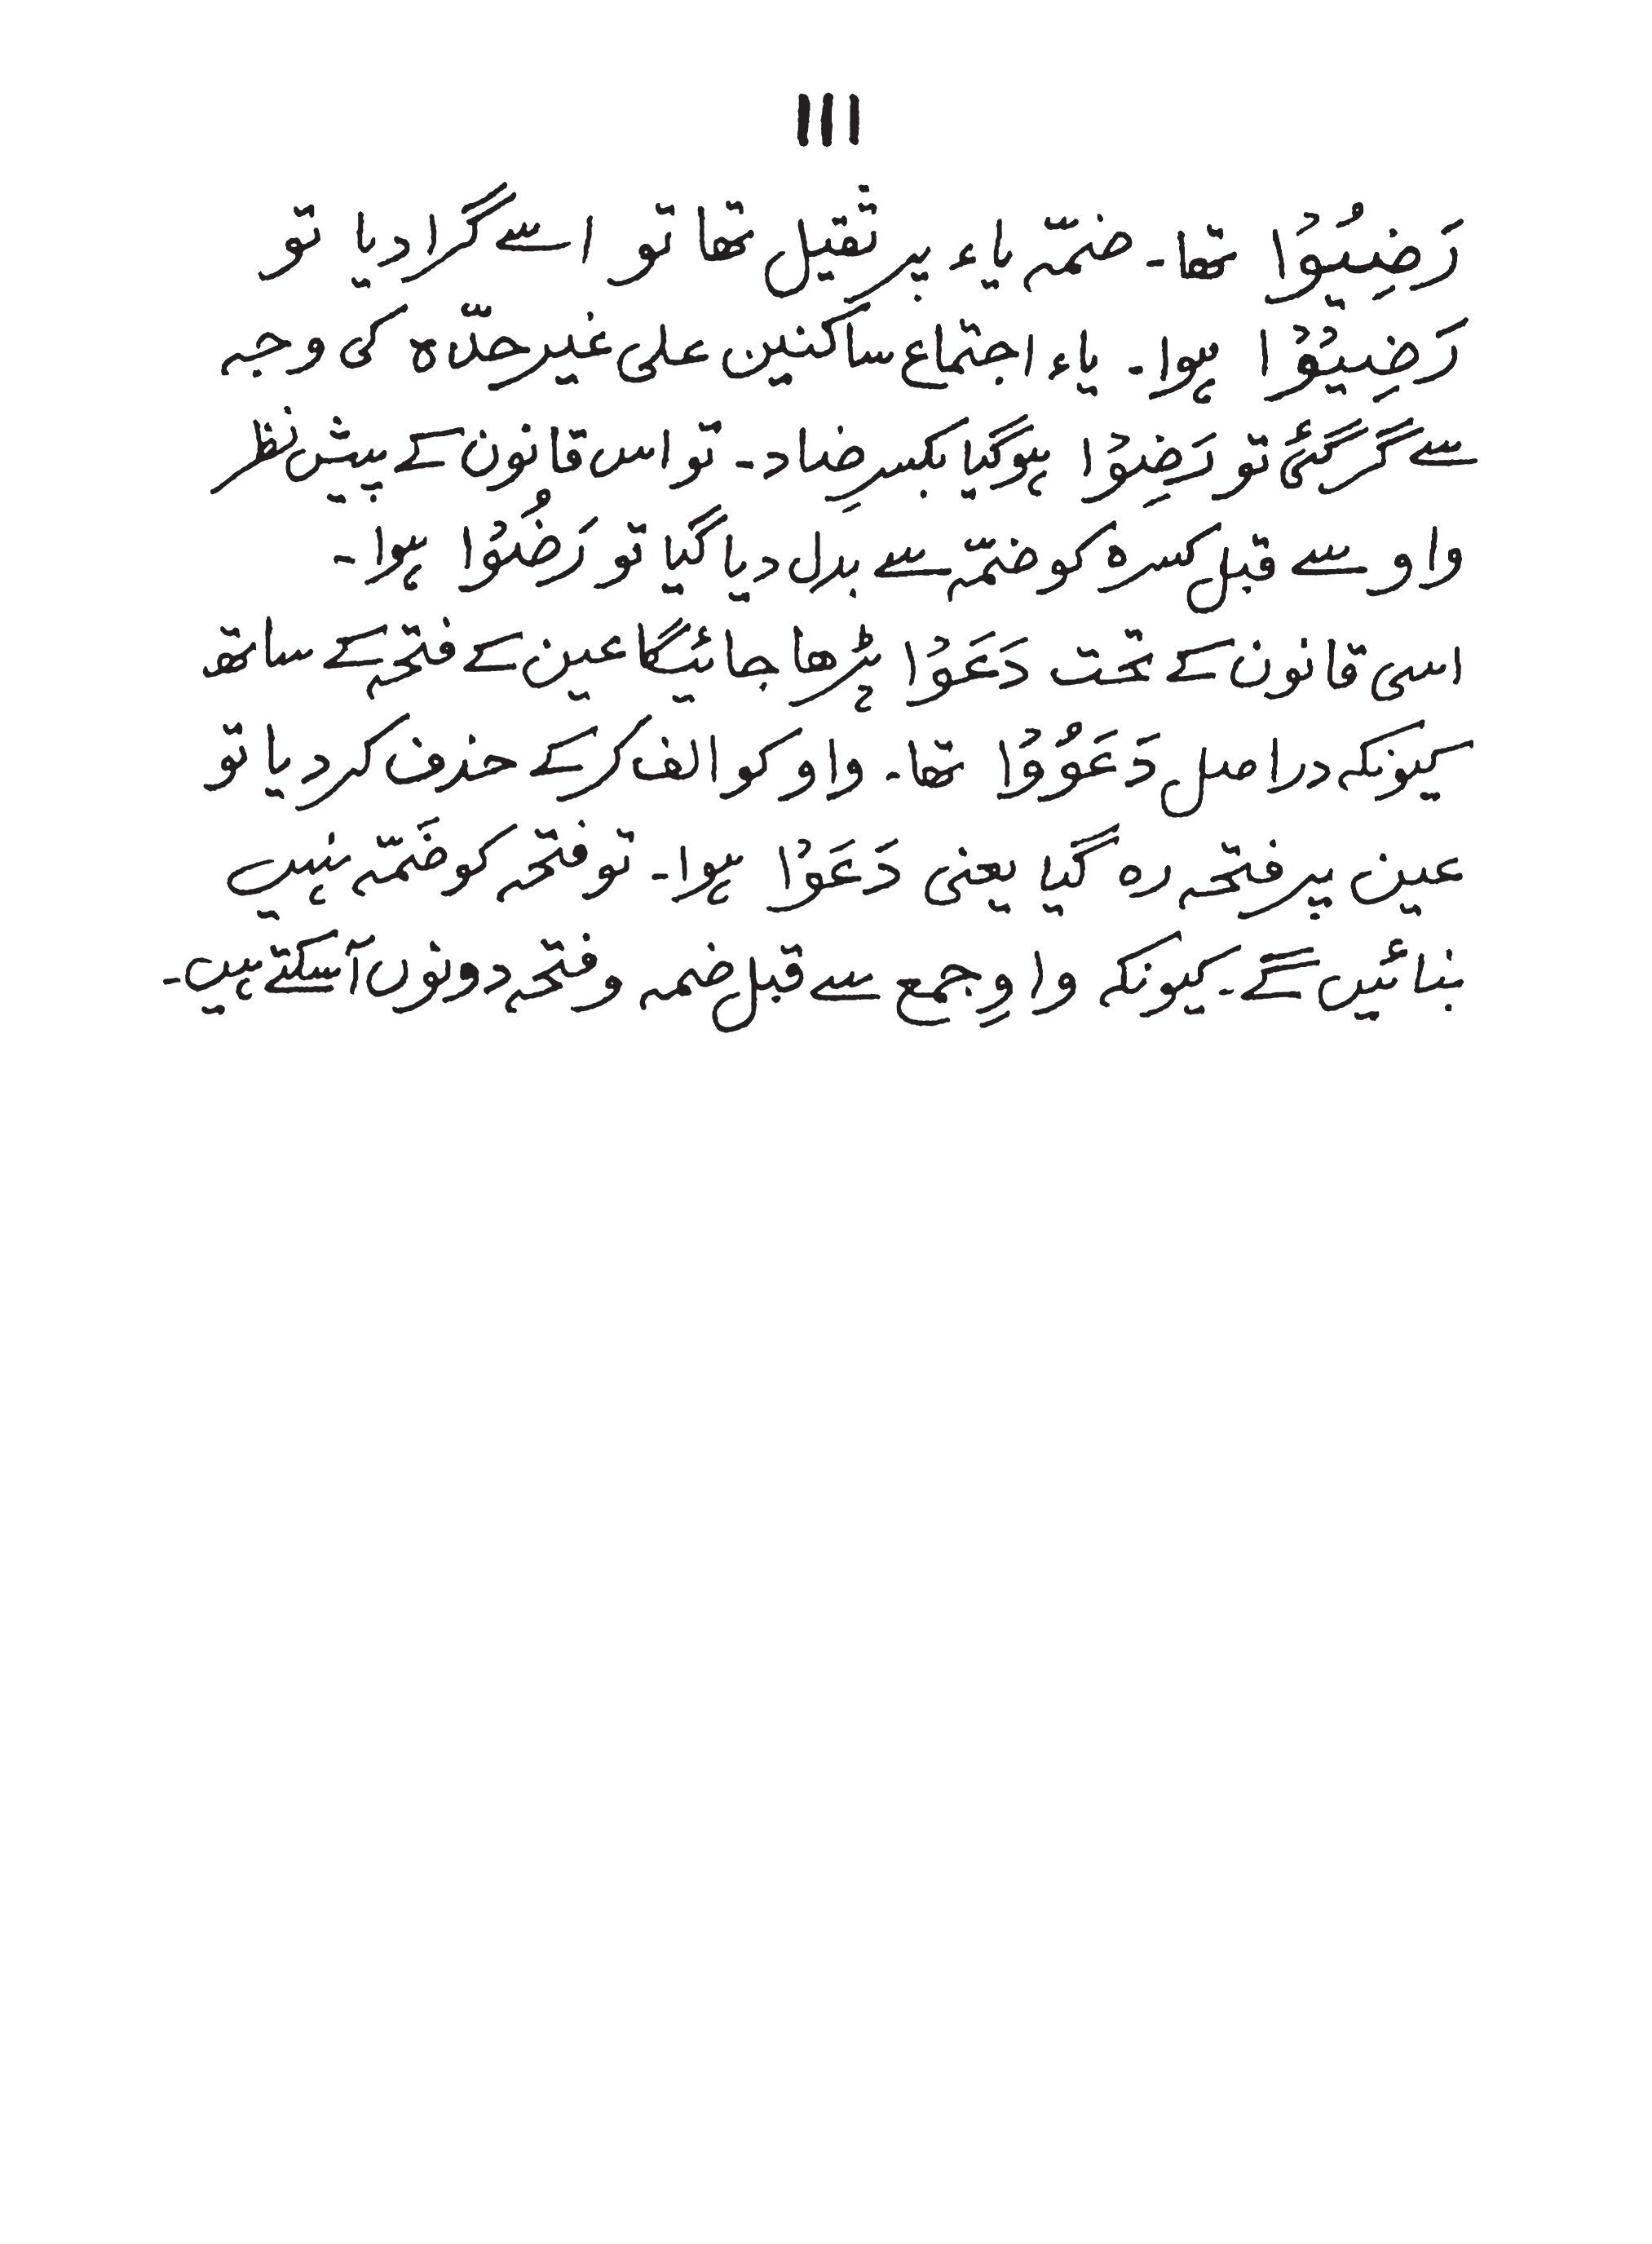 ١١١
رَضِیُوْا تھا۔ ضمّہ یاء پر ثقیل تھا تو اسے گرا دیا تو
رَضِیْوْا ہوا۔ یاء اجتماع ساکنین علی غیر حدّہ کی وجہ
سے گر گئی تو رَضِوْا ہوگیا بکسرِ ضاد۔ تو اس قانون کے پیش نظر
واو سے قبل کسرہ کو ضمّہ سے بدل دیا گیا تو رَضُوْا ہوا۔
اسی قانون کے تحت دَعَوْا پڑھا جائیگا عین کے فتحہ کے ساتھ
کیونکہ دراصل دَعَوُوْا تھا۔ واو کو الف کر کے حذف کر دیا تو
عین پر فتحہ رہ گیا یعنی دَعَوْا ہوا۔ تو فتحہ کو ضَمّہ نہیں
بنائیں گے۔ کیونکہ واوِ جمع سے قبل ضمہ و فتحہ دونوں آسکتے ہیں۔